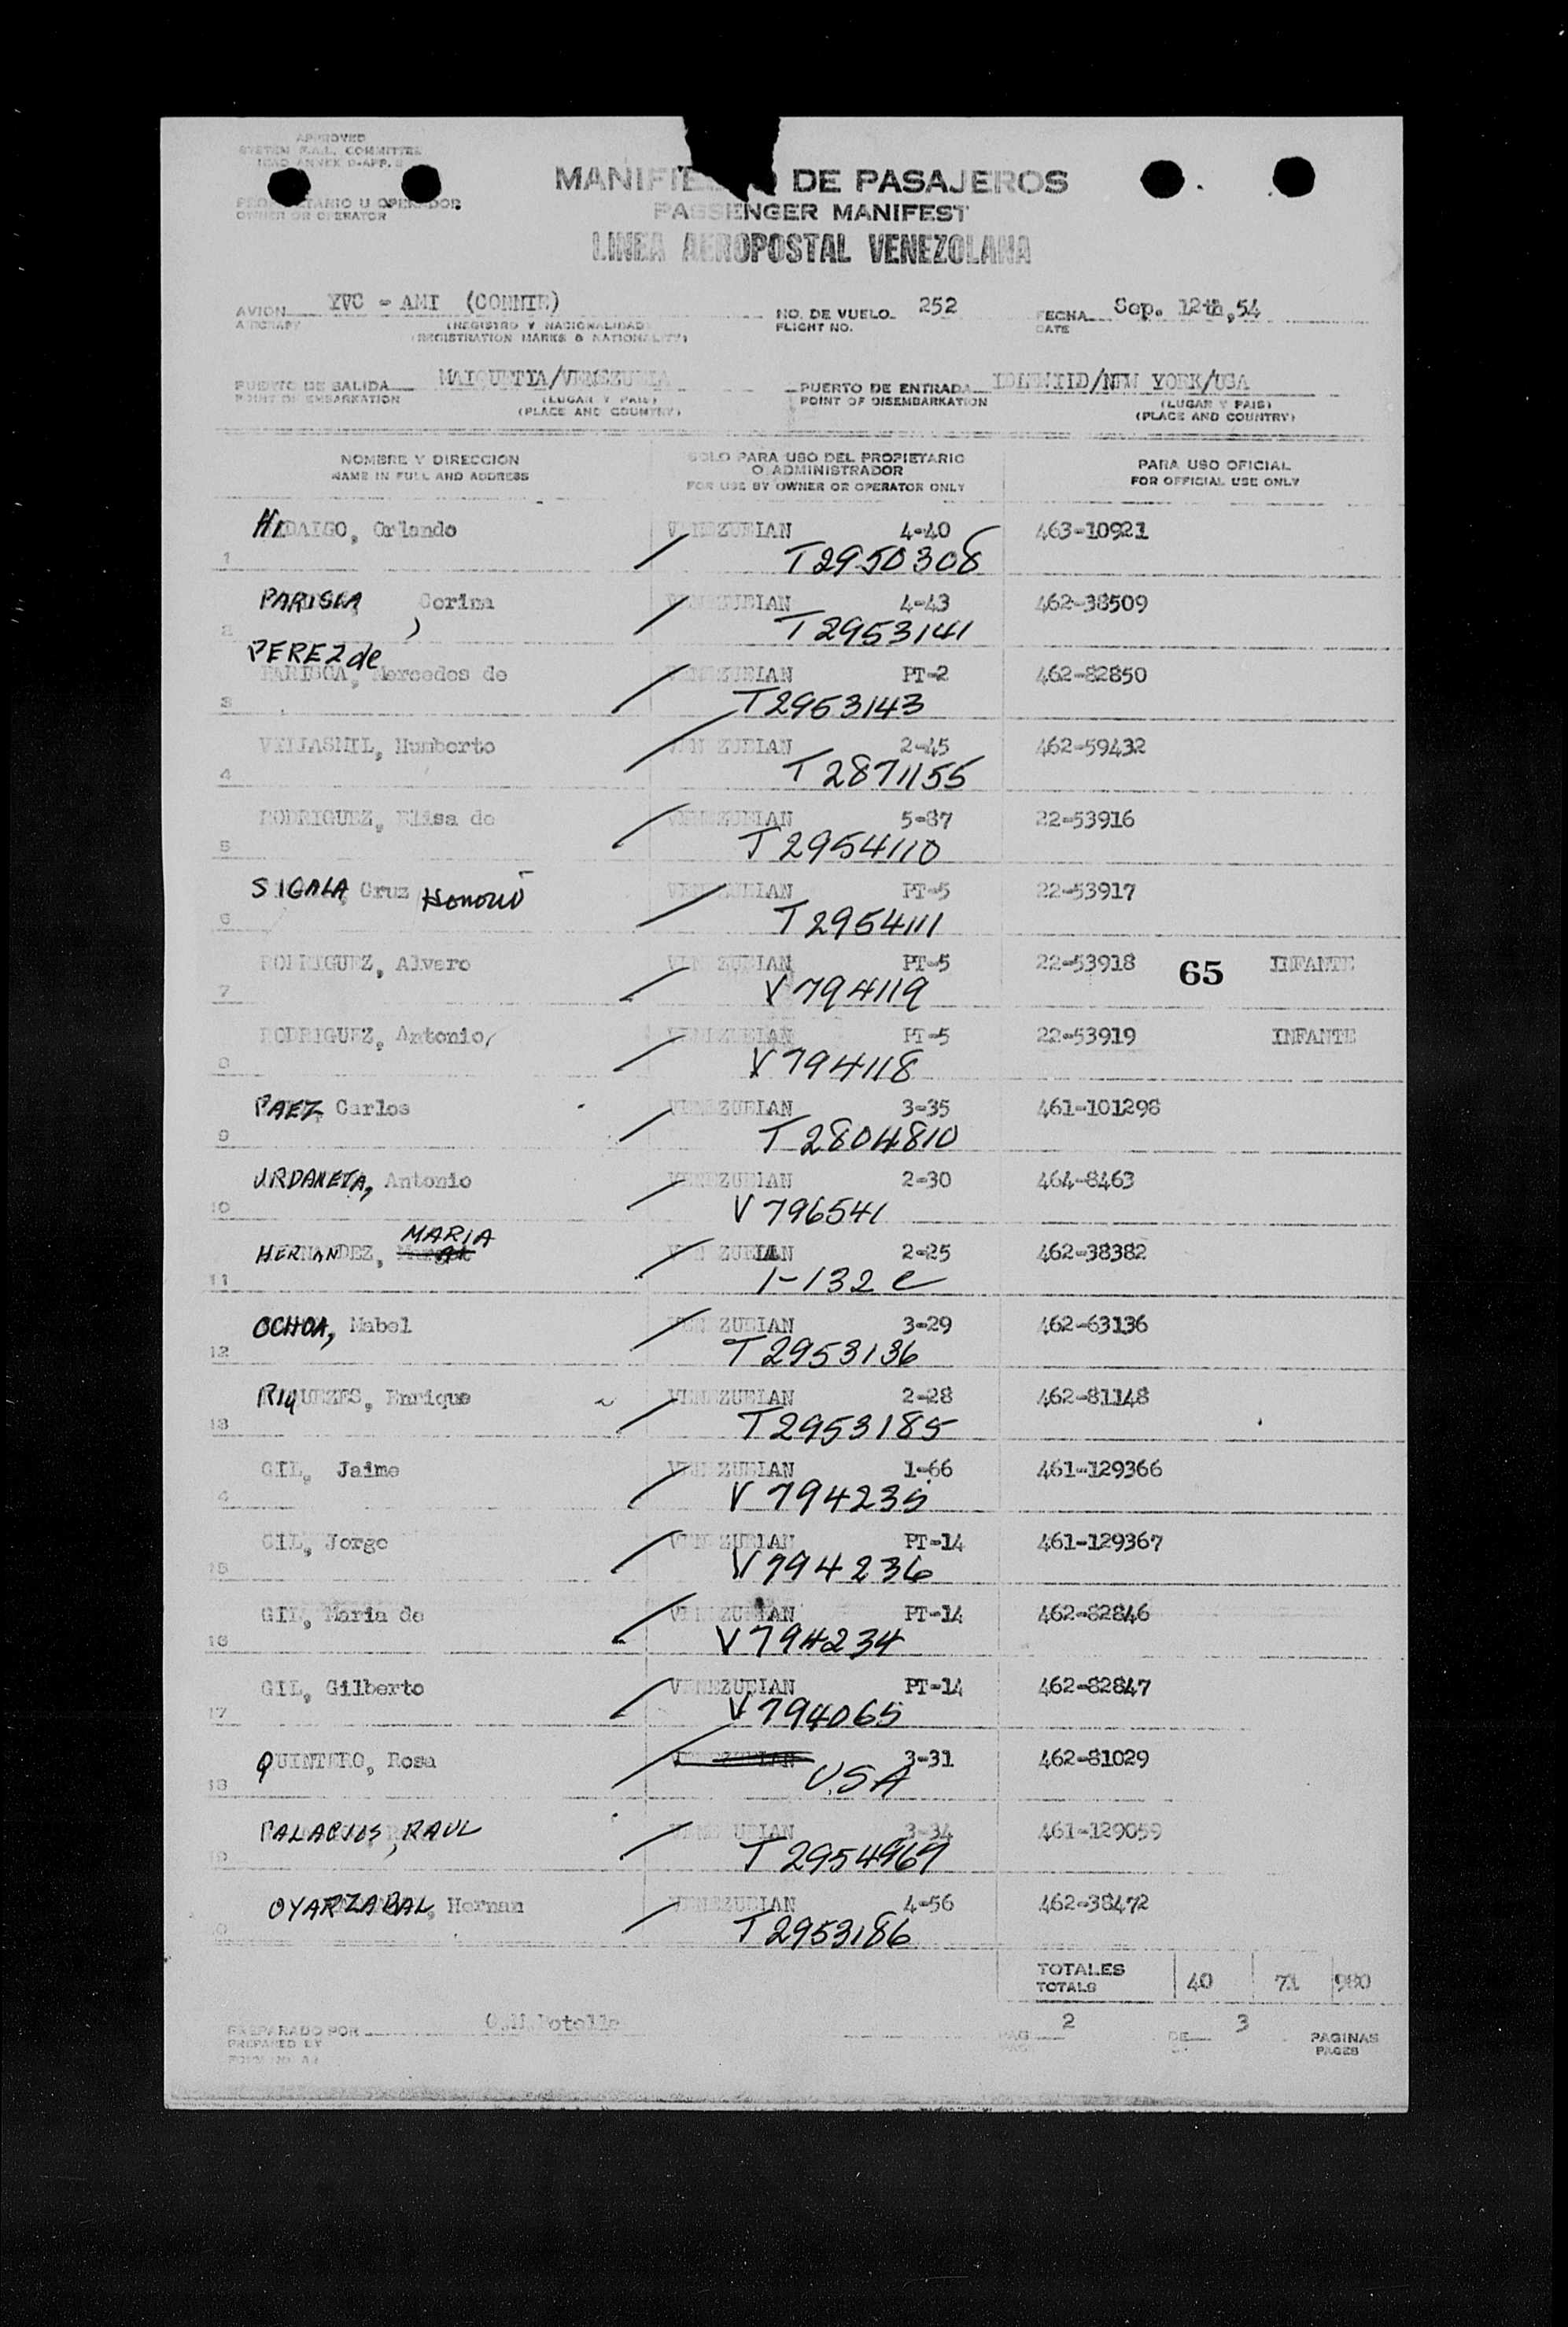 APPROVED
SYSTEM F.A.L. COMMITTEE
ICAO ANNEX 9-APP.
MANIFIE DE PASAJEROS
PASSENGER MANIFEST
U OPERADOR
OWNER OR OPERATOR
LINEA AEROPOSTAL VENEZOLANA
AVION YVC - AMI (CONNIE) NO. DE VUELO 252 FECHA Sep. 12th, 54
AIRCRAFT (REGISTRO Y NACIONALIDAD) FLIGHT NO. DATE
(REGISTRATION MARKS & NATIONALITY)
PUERTO DE SALIDA MAIQUETIA/VENEZUELA PUERTO DE ENTRADA IDLEWIID/NEW YORK/USA
POINT OF EMBARKATION (LUGAR Y PAIS) POINT OF DISEMBARKATION (LUGAR Y PAIS)
(PLACE AND COUNTRY) (PLACE AND COUNTRY)
NOMBRE Y DIRECCION SOLO PARA USO DEL PROPIETARIO O ADMINISTRADOR PARA USO OFICIAL
NAME IN FULL AND ADDRESS FOR USE BY OWNER OR OPERATOR ONLY FOR OFFICIAL USE ONLY
HIDALGO, Orlando VENEZUELAN 4-40 463-10921
1 T2950308
PARISCA, Corina VENEZUELAN 4-43 462-38509
2 T2953141
PEREZ de
PARISCA, Mercedes de VENEZUELAN PT-2 462-82850
3 T2953143
VILLASMIL, Humberto VENEZUELAN 2-45 462-59432
4 T2871155
RODRIGUEZ, Elisa de VENEZUELAN 5-87 22-53916
5 T2954110
SIGALA, Cruz VENEZUELAN PT-5 22-53917
6 T2954111
RODRIGUEZ, Alvaro VENEZUELAN PT-5 22-53918 65 INFANTE
7 V794119
RODRIGUEZ, Antonio VENEZUELAN PT-5 22-53919 INFANTE
8 V794118
PAEZ, Carlos VENEZUELAN 3-35 461-101298
9 T2804810
URDANETA, Antonio VENEZUELAN 2-30 464-8463
10 V796541
MARIA
HERNANDEZ, VENEZUELAN 2-25 462-38382
11 1-132 e
OCHOA, Mabel VENEZUELAN 3-29 462-63136
12 T2953136
RIQUEZES, Enrique VENEZUELAN 2-28 462-81148
13 T2953185
GIL, Jaime VENEZUELAN 1-66 461-129366
4 V794235
GIL, Jorge VENEZUELAN PT-14 461-129367
15 V794236
GIL, Maria de VENEZUELAN PT-14 462-82846
16 V794234
GIL, Gilberto VENEZUELAN PT-14 462-82847
17 V794065
QUINTERO, Rosa VENEZUELAN 3-31 462-81029
18 U.S.A
PALACIOS, RAUL VENEZUELAN 3-34 461-129059
19 T2954969
OYARZABAL, Hernan VENEZUELAN 4-56 462-38472
T2953186
TOTALES 40 71 980
TOTALS
PREPARADO POR PAG 2 DE 3 PAGINAS
PREPARED BY PAGES